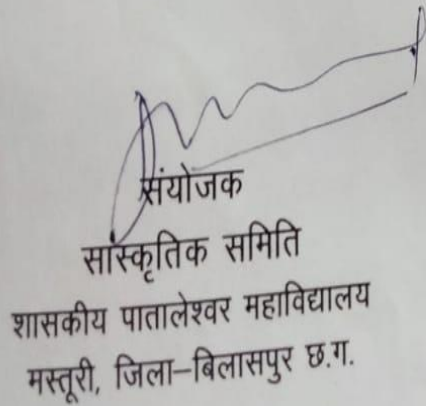 संयोजक
सांस्कृतिक समिति
शासकीय पातालेश्वर महाविद्यालय
मस्तूरी, जिला–बिलासपुर छ.ग.